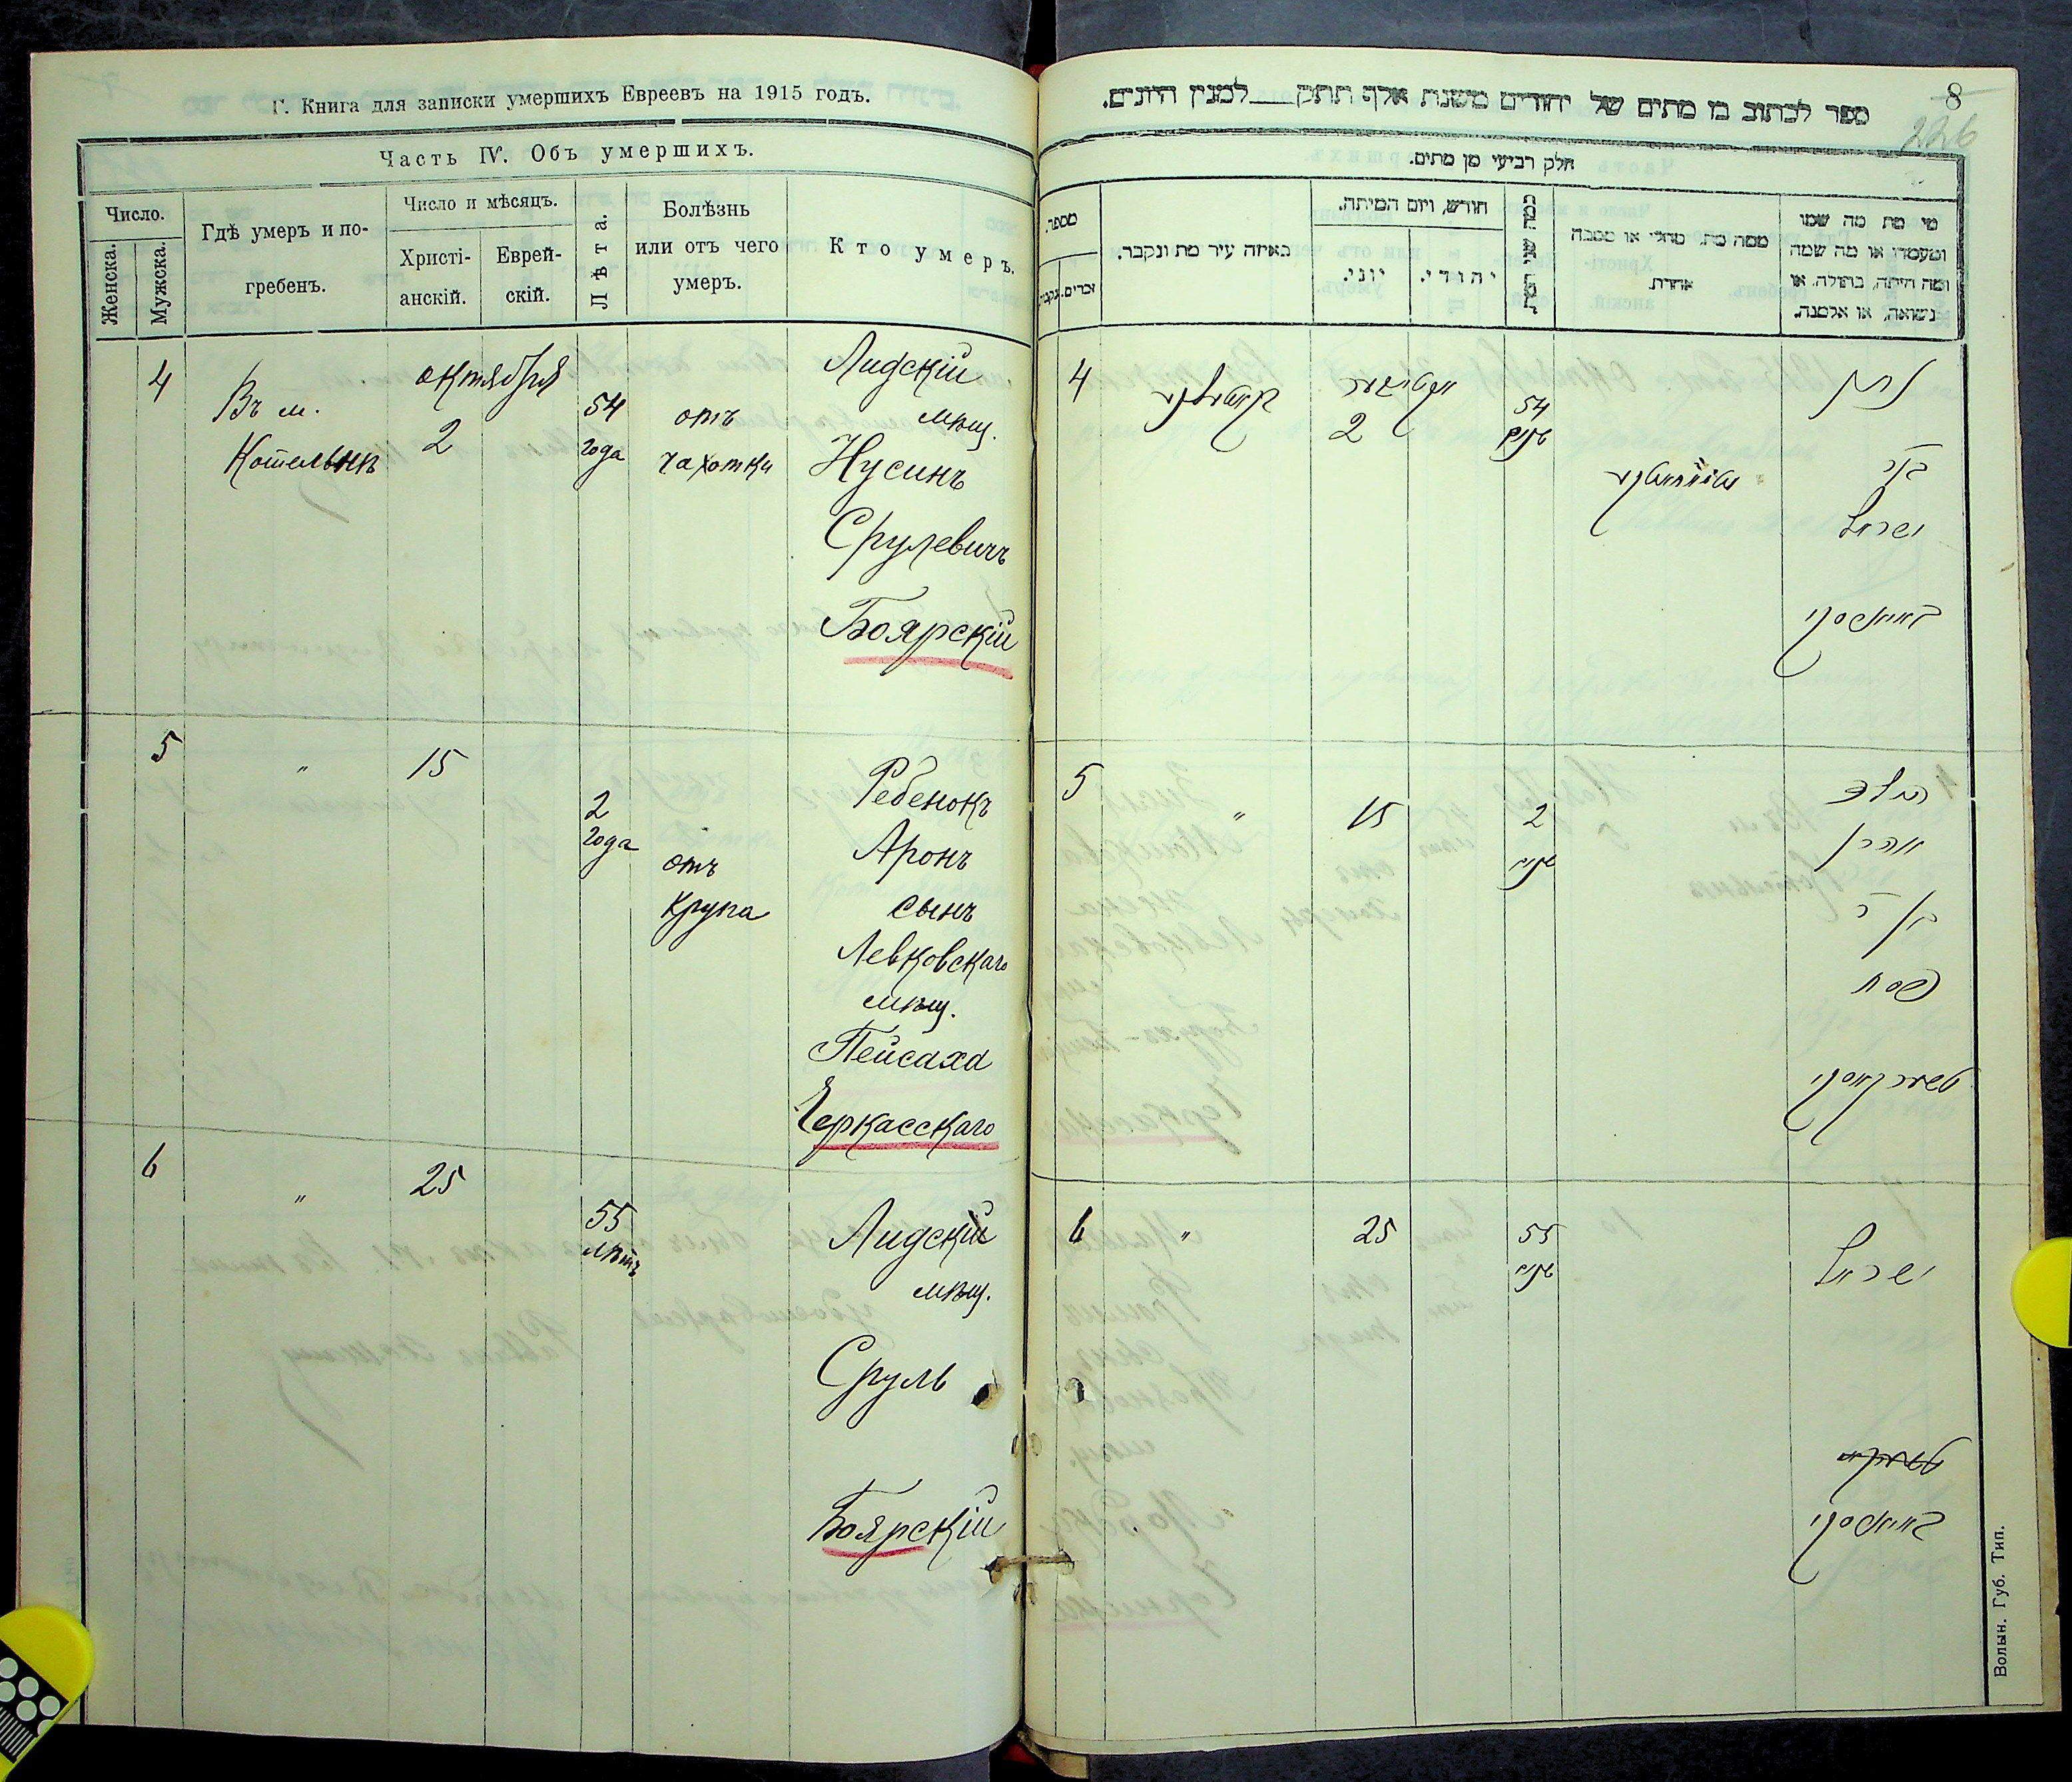 Г. Книга для записки умершихъ Евреевъ на 1915 годъ.
Часть IV. Объ умершихъ.
Число.
Женска.
Мужска.
Гдѣ умеръ и по-
гребенъ.
Число и мѣсяцъ.
Христі-
анскій.
Еврей-
скій.
Лѣта.
Болѣзнь
или отъ чего
умеръ.
Кто умеръ.
4
Въ м.
Котельнѣ
октября
2
54
года
отъ
чахотки
Лидскій
мѣщ.
Нусинъ
Срулевичъ
Боярскій
5
"
15
2
года
отъ
крупа
Ребенокъ
Аронъ
сынъ
Левковскаго
мѣщ.
Пейсаха
Черкасскаго
6
"
25
55
лѣтъ
Лидскій
мѣщ.
Сруль
Боярскій
8
226
ספר לכתוב בו מתים של יהודים משנת אלף תתק___למנין היונים.
חלק רביעי מן מתים.
מספר.
זכרים.
נקבו׳
באיזה עיר מת ונקבר.
חודש, ויום המיתה.
יוני.
יהודי.
ממה מת, מחלי או מסבה
אחרת.
מי מת מה שמו
ומעמדו או מה שמה
ומה היתה, בתולה, או
נשואה, או אלמנה.
4
2
54
שנים
נתן
בר
ישראל
באיארסקי
5
"
15
2
שנים
הילד
אהרן
בן ר
פסח
טשערקאסקי
6
"
25
55
שנים
ישראל
באיארסקי
Волын. Губ. Тип.